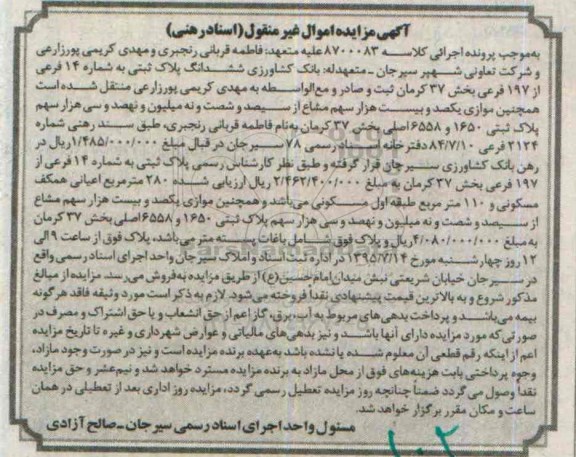 آگهی مزایده اموال غیر منقول (اسناد رهنی)
به‌موجب پرونده اجرائی کلاسه ۸۷۰۰۰۸۳ علیه متعهد: فاطمه قربانی رنجبری و مهدی کریمی پورزارعی
و شرکت تعاونی شهپر سیرجان ـ متعهدله: بانک کشاورزی ششدانگ پلاک ثبتی به شماره ۱۴ فرعی
از ۱۹۷ فرعی بخش ۳۷ کرمان ثبت و صادر و مع‌الواسطه به مهدی کریمی پورزارعی منتقل شده است
همچنین موازی یکصد و بیست هزار سهم مشاع از سیصد و شصت و نه میلیون و نهصد و سی هزار سهم
پلاک ثبتی ۱۶۵۰ و ۶۵۵۸ اصلی بخش ۳۷ کرمان به‌نام فاطمه قربانی رنجبری، طبق سند رهنی شماره
۲۱۲۴ فرعی ۸۴/۷/۱۰ دفترخانه اسناد رسمی ۷۸ سیرجان در قبال مبلغ ۱/۴۸۵/۰۰۰/۰۰۰ ریال در
رهن بانک کشاورزی سیرجان قرار گرفته و طبق نظر کارشناس رسمی پلاک ثبتی به شماره ۱۴ فرعی از
۱۹۷ فرعی بخش ۳۷ کرمان به مبلغ ۲/۴۶۲/۴۰۰/۰۰۰ ریال ارزیابی شده ۲۸۰ مترمربع اعیانی همکف
مسکونی و ۱۱۰ متر مربع طبقه اول مسکونی می‌باشد و همچنین موازی یکصد و بیست هزار سهم مشاع
از سیصد و شصت و نه میلیون و نهصد و سی هزار سهم پلاک ثبتی ۱۶۵۰ و ۶۵۵۸ اصلی بخش ۳۷ کرمان
به مبلغ ۴/۰۸۰/۰۰۰/۰۰۰ ریال و پلاک فوق شامل باغات پسته متر می‌باشد، پلاک فوق از ساعت ۹ الی
۱۲ روز چهارشنبه مورخ ۱۳۹۵/۷/۱۴ در اداره ثبت اسناد و املاک سیرجان واحد اجرای اسناد رسمی واقع
در سیرجان خیابان شریعتی نبش میدان امام حسین(ع) از طریق مزایده به‌فروش می‌رسد. مزایده از مبالغ
مذکور شروع و به بالاترین قیمت پیشنهادی نقداً فروخته می‌شود. لازم به ذکر است مورد وثیقه فاقد هرگونه
بیمه می‌باشد و پرداخت بدهی‌های مربوط به آب، برق، گاز اعم از حق انشعاب و یا حق اشتراک و مصرف در
صورتی‌که مورد مزایده دارای آنها باشد و نیز بدهی‌های مالیاتی و عوارض شهرداری و غیره تا تاریخ مزایده
اعم از اینکه رقم قطعی آن معلوم شده یا نشده باشد به‌عهده برنده مزایده است و نیز در صورت وجود مازاد،
وجوه پرداختی بابت هزینه‌های فوق از محل مازاد به برنده مزایده مسترد خواهد شد و نیم‌عشر و حق مزایده
نقداً وصول می‌گردد ضمناً چنانچه روز مزایده تعطیل رسمی گردد، مزایده روز اداری بعد از تعطیلی در همان
ساعت و مکان مقرر برگزار خواهد شد.
مسئول واحد اجرای اسناد رسمی سیرجان ـ صالح آزادی